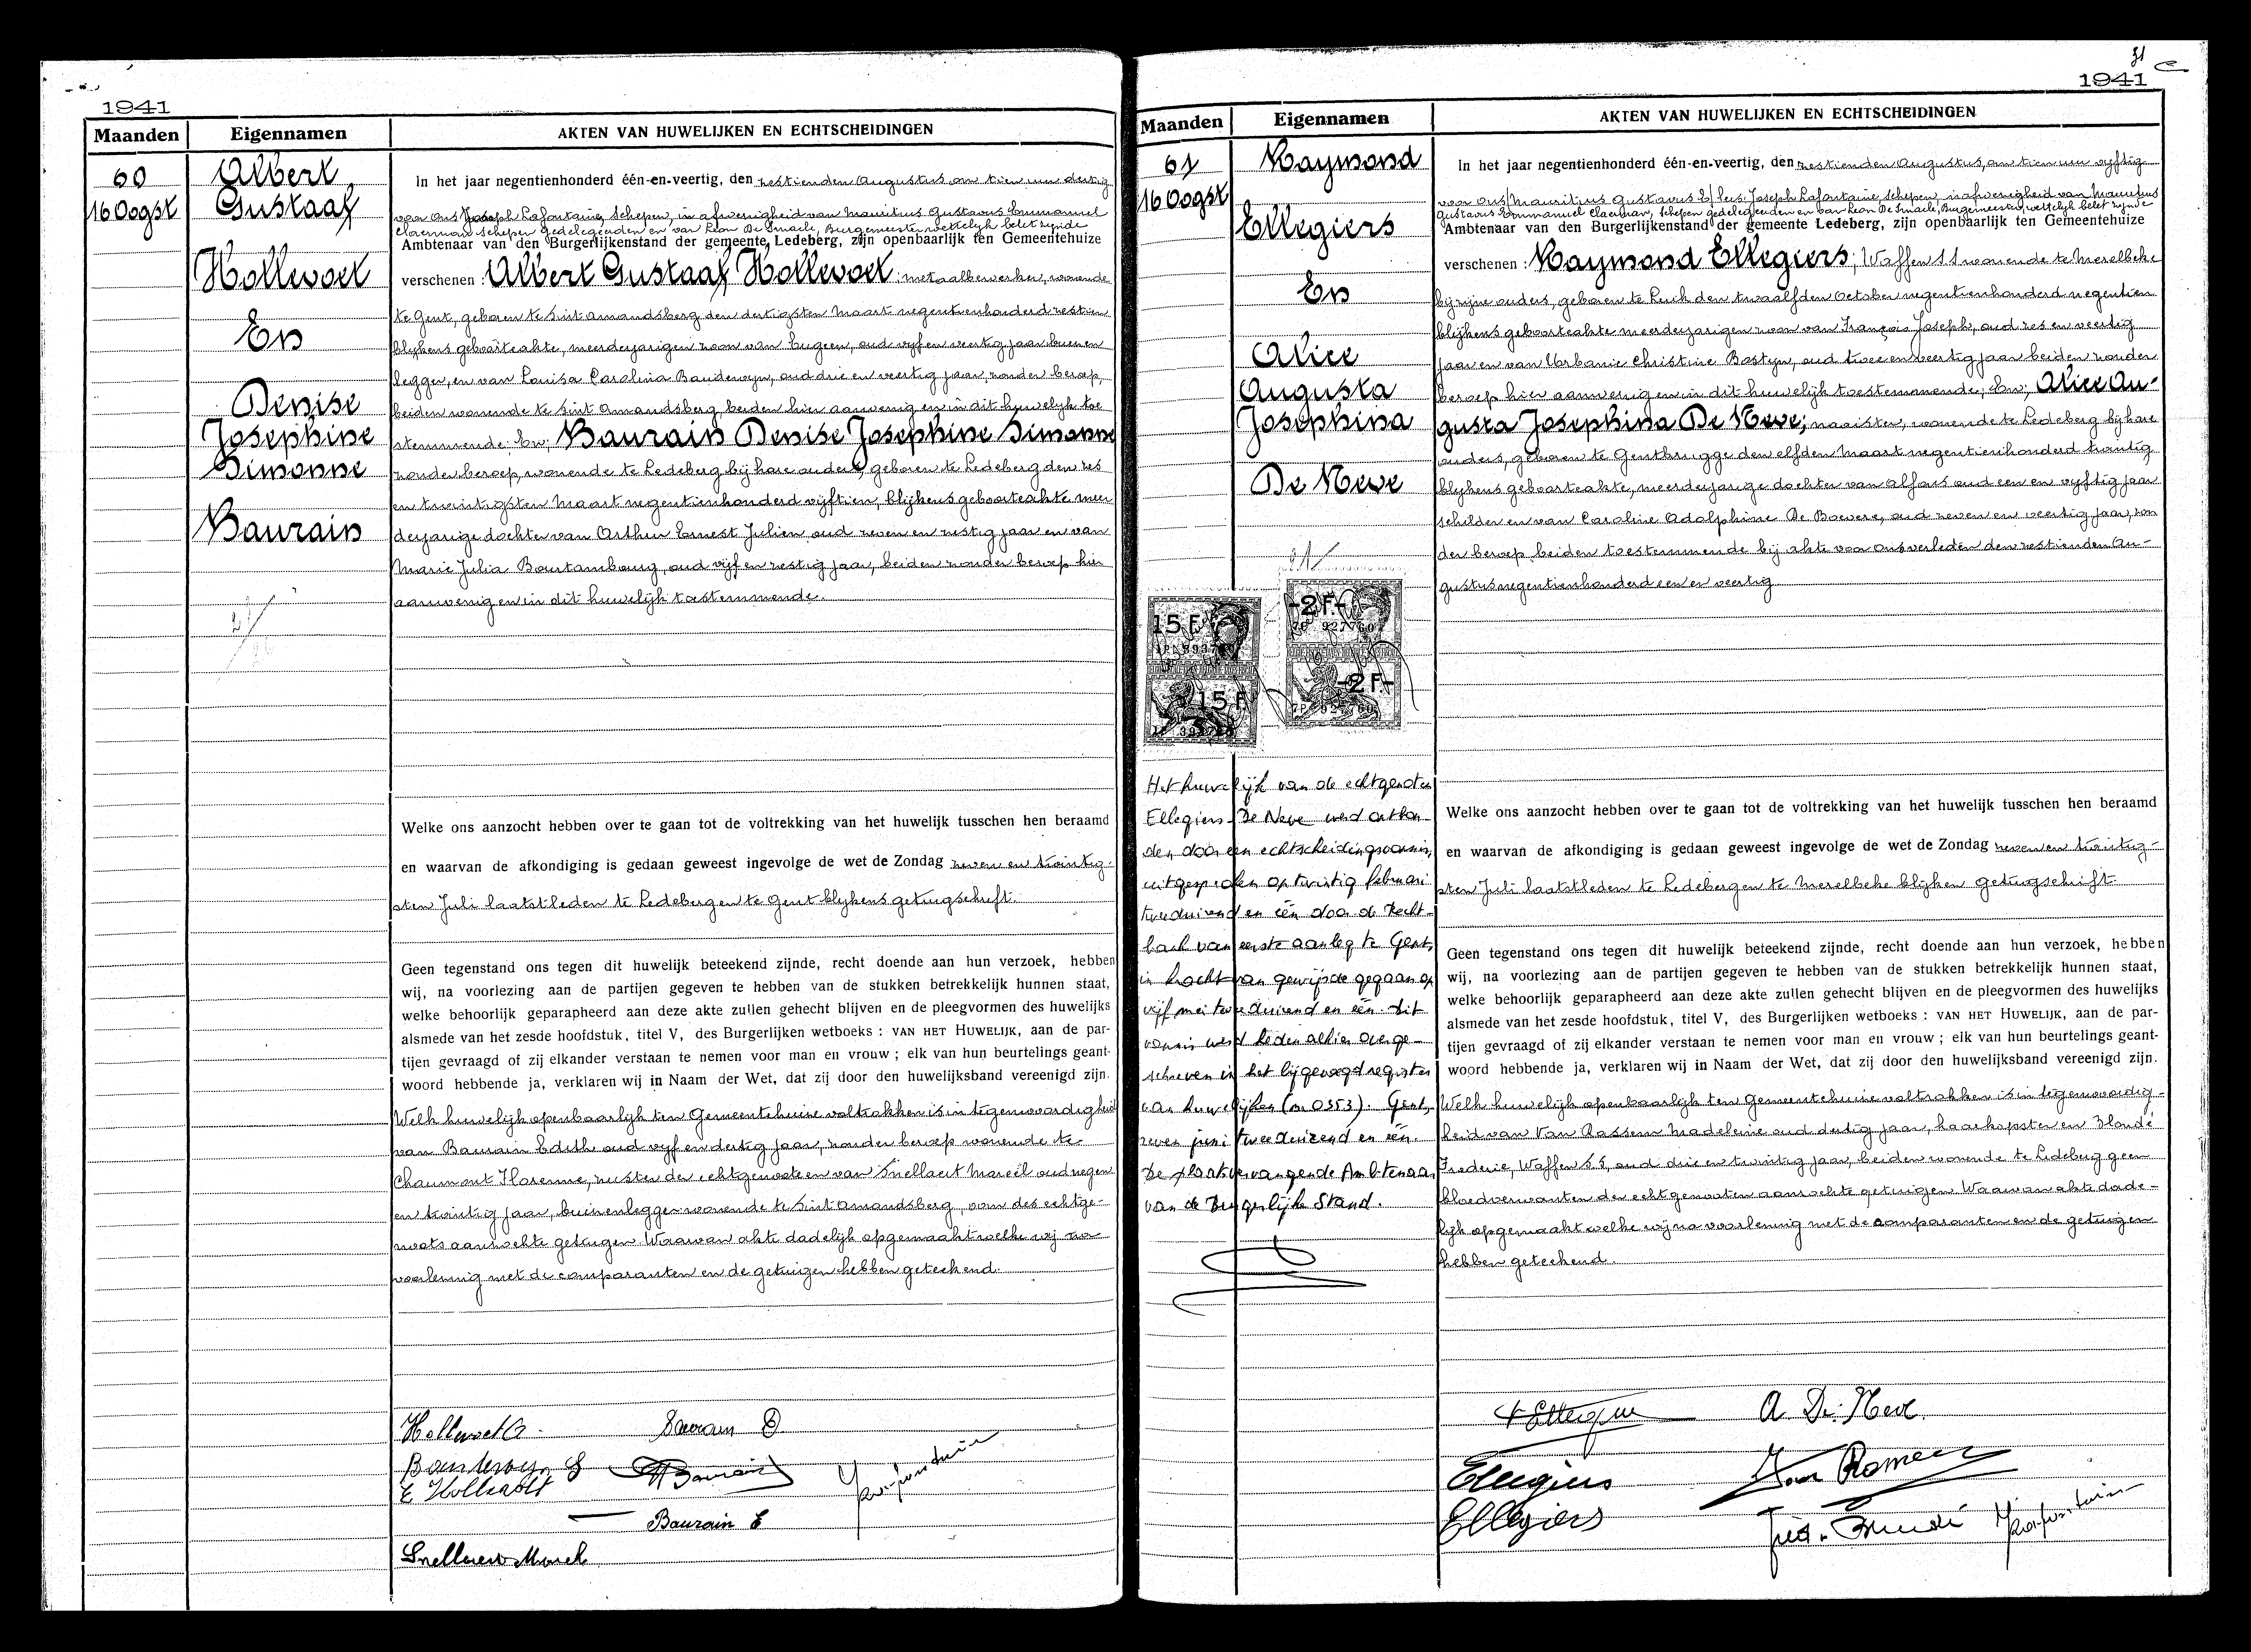 1941
Maanden Eigennamen AKTEN VAN HUWELIJKEN EN ECHTSCHEIDINGEN
60
16 Oogst
Albert
Gustaaf
Hollevoet
En
Denise
Josephine
Simonne
Baurain
In het jaar negentienhonderd één-en-veertig, den zestienden Augustus om tien uur dertig
voor Ons Joseph Lafontaine, Schepen, in afwezigheid van Mauritius Gustavus Emmanuel
Claerman Schepen gedelegeerden en van Leon De Smaele, Burgemeester wettelijk belet zijnde
Ambtenaar van den Burgerlijkenstand der gemeente Ledeberg, zijn openbaarlijk ten Gemeentehuize
verschenen : Albert Gustaaf Hollevoet; metaalbewerker, wonende
te Gent, geboren te Sint Amandsberg den dertigsten Maart negentienhonderd zestien
blijkens geboorteakte, meerderjarigen zoon van Eugeen, oud vijf en veertig jaar buizen
legger, en van Louisa Carolina Baudewyn, oud drie en veertig jaar, zonder beroep,
beiden wonende te Sint Amandsberg beiden hier aanwezig en in dit huwelijk toe
stemmende. En; Baurain Denise Josephine Simonne
zonder beroep, wonende te Ledeberg bij hare ouders, geboren te Ledeberg den zes
en twintigsten Maart negentienhonderd vijftien, blijkens geboorteakte meer
derjarige dochter van Arthur Ernest Julien oud zeven en zestig jaar en van
Marie Julia Bourtambourg, oud vijf en zestig jaar, beiden zonder beroep hier
aanwezig en in dit huwelijk toestemmende.
Welke ons aanzocht hebben over te gaan tot de voltrekking van het huwelijk tusschen hen beraamd
en waarvan de afkondiging is gedaan geweest ingevolge de wet de Zondag zeven en twintig-
sten Juli laatstleden te Ledeberg en te Gent blijkens getuigschrift.
Geen tegenstand ons tegen dit huwelijk beteekend zijnde, recht doende aan hun verzoek, hebben
wij, na voorlezing aan de partijen gegeven te hebben van de stukken betrekkelijk hunnen staat,
welke behoorlijk geparapheerd aan deze akte zullen gehecht blijven en de pleegvormen des huwelijks
alsmede van het zesde hoofdstuk, titel V, des Burgerlijken wetboeks : VAN HET HUWELIJK, aan de par-
tijen gevraagd of zij elkander verstaan te nemen voor man en vrouw ; elk van hun beurtelings geant-
woord hebbende ja, verklaren wij in Naam der Wet, dat zij door den huwelijksband vereenigd zijn.
Welk huwelijk openbaarlijk ten Gemeentehuize voltrokken is in tegenwoordigheid
van Baurain Edith oud vijf en dertig jaar, zonder beroep wonende te
Chaumont Florenne, zuster der echtgenoote en van Snellaert Marcel oud negen
en twintig jaar, buizenlegger wonende te Sint Amandsberg, oom des echtge-
noots aanzochte getuigen. Waarvan akte dadelijk opgemaakt welke wij na
voorlezing met de comparanten en de getuigen hebben geteekend.
Hollevoet A Baurain D
Baudewyn L Baurain Lafontaine
E Hollevoet
Baurain E
Snellaert Marcel
31
1941
Maanden Eigennamen AKTEN VAN HUWELIJKEN EN ECHTSCHEIDINGEN
61
16 Oogst
Raymond
Ellegiers
En
Alice
Augusta
Josephina
De Neve
In het jaar negentienhonderd één-en-veertig, den zestienden Augustus, om tien uur vijftig
voor Ons Mauritius Gustavus E lees Joseph Lafontaine, Schepen, in afwezigheid van Mauritius
Gustavus Emmanuel Claerman, Schepen gedelegeerden en van Leon De Smaele, Burgemeester, wettelijk belet zijnde
Ambtenaar van den Burgerlijkenstand der gemeente Ledeberg, zijn openbaarlijk ten Gemeentehuize
verschenen : Raymond Ellegiers; Waffen SS wonende te Merelbeke
bij zijne ouders, geboren te Luik den twaalfden October negentienhonderd negentien
blijkens geboorteakte meerderjarigen zoon van François Joseph, oud zes en veertig
jaar en van Urbanie Christine Bastyn, oud twee en veertig jaar beiden zonder
beroep hier aanwezig en in dit huwelijk toestemmende; En; Alice Au-
gusta Josephina De Neve; naaister, wonende te Ledeberg bij hare
ouders, geboren te Gentbrugge den elfden Maart negentienhonderd twintig
blijkens geboorteakte, meerderjarige dochter van Alfons oud een en vijftig jaar
schilder en van Caroline Adolphine De Boevere, oud zeven en veertig jaar, zon
der beroep beiden toestemmende bij akte voor Ons verleden den zestienden Au-
gustus negentienhonderd een en veertig
15 F
15 F
-2F.-
-2F.-
Het huwelijk van de echtgenoten
Ellegiers - De Neve werd ontbon-
den door een echtscheidingsvonnis,
uitgesproken op twintig februari
tweeduizend en één door de Recht-
bank van eerste aanleg te Gent,
in kracht van gewijsde gegaan op
vijf mei tweeduizend en één. Dit
vonnis werd heden alhier overge-
schreven in het bijgevoegd register
van huwelijken (nr 0353). Gent,
zeven juni tweeduizend en één.
De plaatsvervangende Ambtenaar
van de Burgerlijke Stand.
Welke ons aanzocht hebben over te gaan tot de voltrekking van het huwelijk tusschen hen beraamd
en waarvan de afkondiging is gedaan geweest ingevolge de wet de Zondag zeven en twintig-
sten Juli laatstleden te Ledeberg en te Merelbeke blijken getuigschrift.
Geen tegenstand ons tegen dit huwelijk beteekend zijnde, recht doende aan hun verzoek, hebben
wij, na voorlezing aan de partijen gegeven te hebben van de stukken betrekkelijk hunnen staat,
welke behoorlijk geparapheerd aan deze akte zullen gehecht blijven en de pleegvormen des huwelijks
alsmede van het zesde hoofdstuk, titel V, des Burgerlijken wetboeks : VAN HET HUWELIJK, aan de par-
tijen gevraagd of zij elkander verstaan te nemen voor man en vrouw ; elk van hun beurtelings geant-
woord hebbende ja, verklaren wij in Naam der Wet, dat zij door den huwelijksband vereenigd zijn.
Welk huwelijk openbaarlijk ten Gemeentehuize voltrokken is in tegenwoordig-
heid van Van Rassem Madeleine oud dertig jaar, haarkapster en Blondé
Frederic, Waffen S.S, oud drie en twintig jaar, beiden wonende te Ledeberg geen
bloedverwanten der echtgenooten aanzochte getuigen. Waarvan akte dade-
lijk opgemaakt welke wij na voorlezing met de comparanten en de getuigen
hebben geteekend.
Ellegiers A De Neve
Ellegiers
Ellegiers Lafontaine